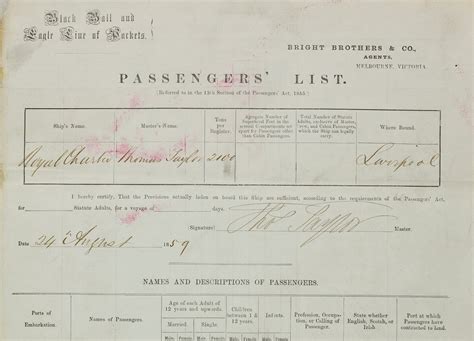 Black Ball and
Eagle Line of Packets.
BRIGHT BROTHERS & CO.,
AGENTS,
MELBOURNE, VICTORIA.
PASSENGERS' LIST.
(Referred to in the 13th Section of the Passengers' Act, 1855.)
Ship's Name.
Master's Name.
Tons per Register.
Aggregate Number of Superficial Feet in the several Compartments set apart for Passengers other than Cabin Passengers.
Total Number of Statute Adults, exclusive of Master, Crew, and Cabin Passengers, which the Ship can legally carry.
Where Bound.
Royal Charter Thomas Taylor 2100 Liverpool
I hereby certify, That the Provisions actually laden on board this Ship are sufficient, according to the requirements of the Passengers' Act,
for Statute Adults, for a voyage of days.
Signature} Tho Taylor Master.
Date 24th August 1859
NAMES AND DESCRIPTIONS OF PASSENGERS.
Ports of Embarkation.
Names of Passengers.
Age of each Adult of 12 years and upwards.
Married. Single.
Children between 1 & 12 years.
Infants.
Profession, Occupation, or Calling of Passenger.
State whether English, Scotch, or Irish.
Port at which Passengers have contracted to land.
Male Female Male Female Male Female Male Female